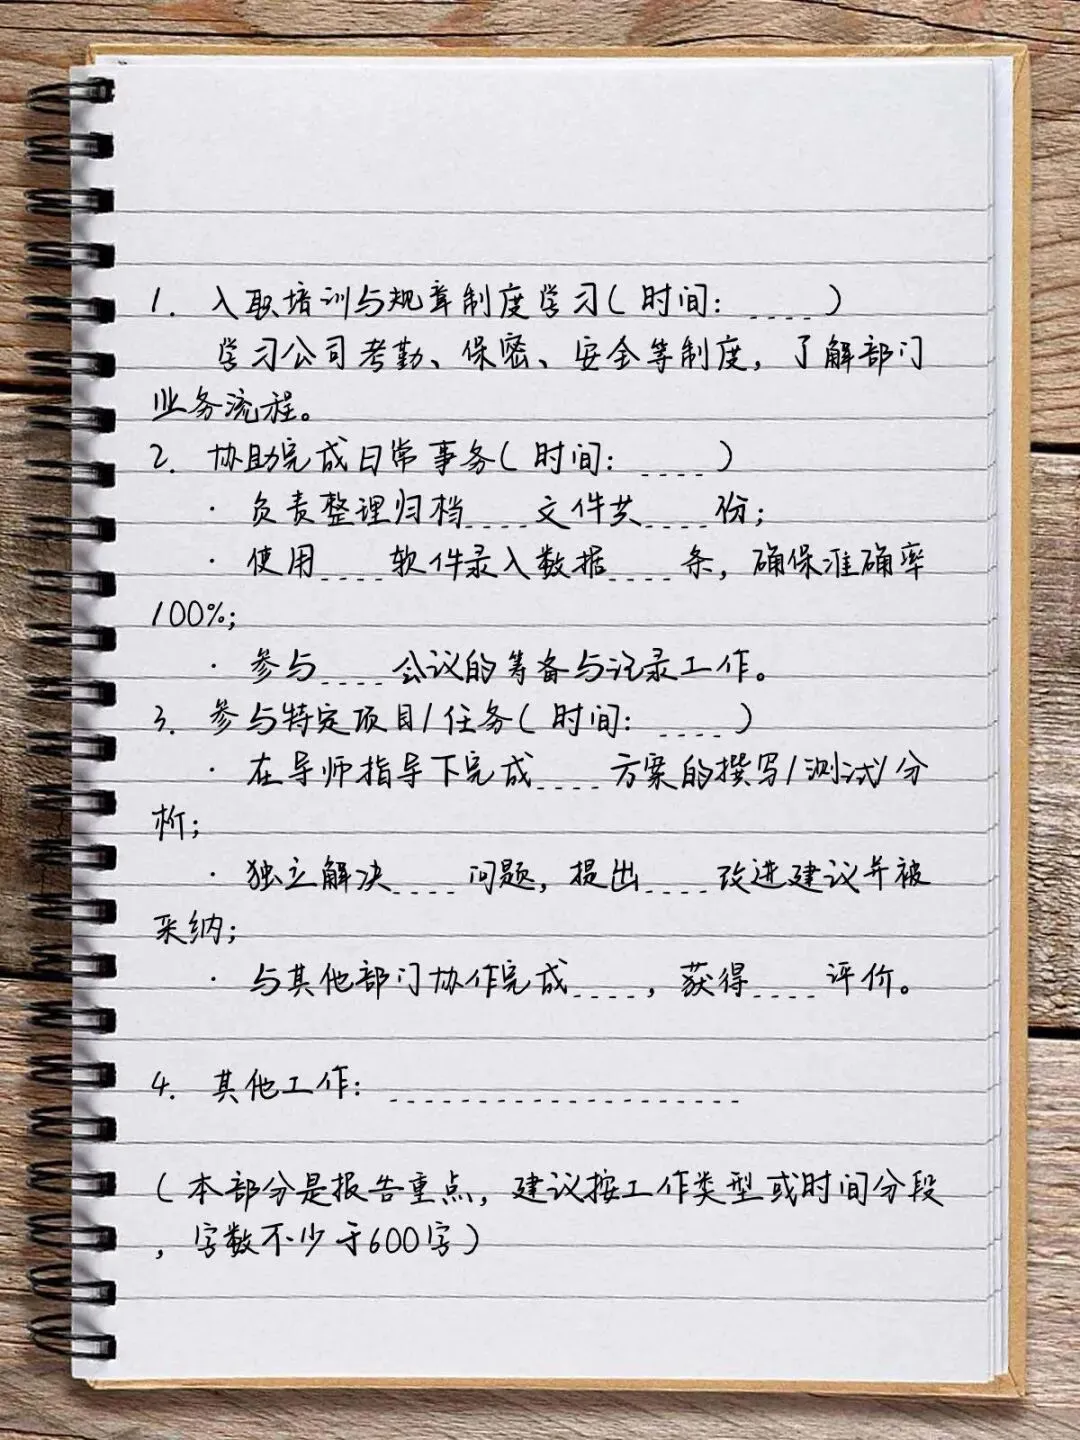 1. 入职培训与规章制度学习(时间: ____)
学习公司考勤、保密、安全等制度，了解部门
业务流程。
2. 协助完成日常事务(时间: ____)
· 负责整理归档____文件共____份;
· 使用____软件录入数据____条，确保准确率
100%;
· 参与____会议的筹备与记录工作。
3. 参与特定项目/任务(时间: ____)
· 在导师指导下完成____方案的撰写/测试/分
析;
· 独立解决____问题，提出____改进建议并被
采纳;
· 与其他部门协作完成____，获得____评价。
4. 其他工作: ____________________
(本部分是报告重点，建议按工作类型或时间分段
，字数不少于600字)